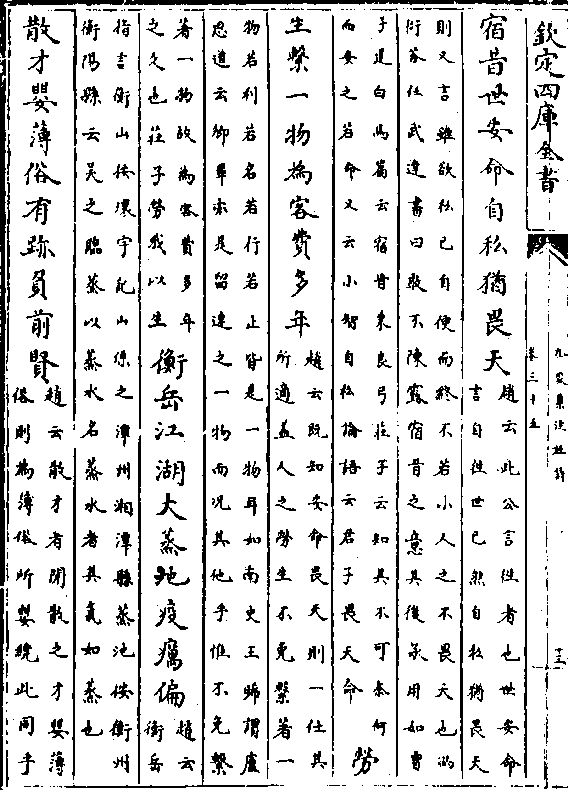 欽定四庫全書
九家集注杜詩
卷三十五
十三
宿昔世安命自私猶畏天
趙云此公言往者也世安命
言自往世已然自私猶畏天
則又言雖欲私已自便而終不若小人之不畏天也
衍答任武達書曰敢不陳露宿昔之意其後承用如曹
子建白馬篇云宿昔秉良弓莊子云知其不可奈何
而安之若命又云小智自私論語云君子畏天命
勞
生繫一物為客費多年
趙云既知安命畏天則一任其
所適蓋人之勞生不免繫著一
物若利若名若行若止皆是一物耳如南史王晞謂盧
思道云卿輩亦是留連之一物而況其他乎惟不免繫
著一物故為客費多年
之久也莊子勞我以生
衡岳江湖大蒸池疫癘偏
趙云
衡岳
指言衡山按寰宇記山係之潭州湘潭縣蒸池按衡州
衡陽縣云吳之臨蒸以蒸水名蒸水者其氣如蒸也
散才嬰薄俗有跡負前賢
趙云散才者閑散之才嬰薄
俗則為薄俗所嬰繞此同乎